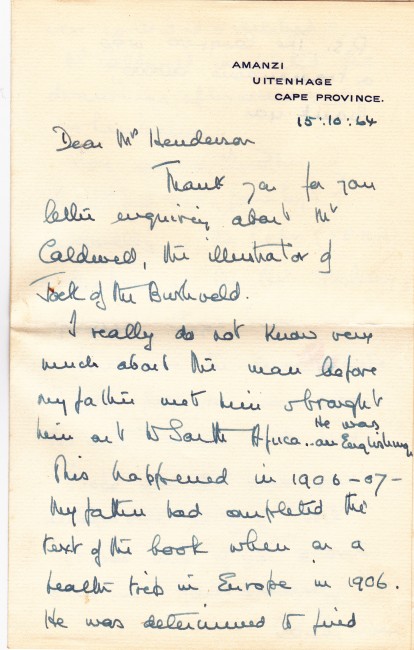 AMANZI
UITENHAGE
CAPE PROVINCE.
15:10:64
Dear Mrs Henderson
Thank you for your
letter enquiring about Mr
Caldwell, the illustrator of
Jock of the Bushveld.
I really do not know very
much about the man before
my father met him & brought
him out to South Africa.. He was an Englishman
This happened in 1906-07-
My father had completed the
text of the book when on a
health trip in Europe in 1906.
He was determined to find